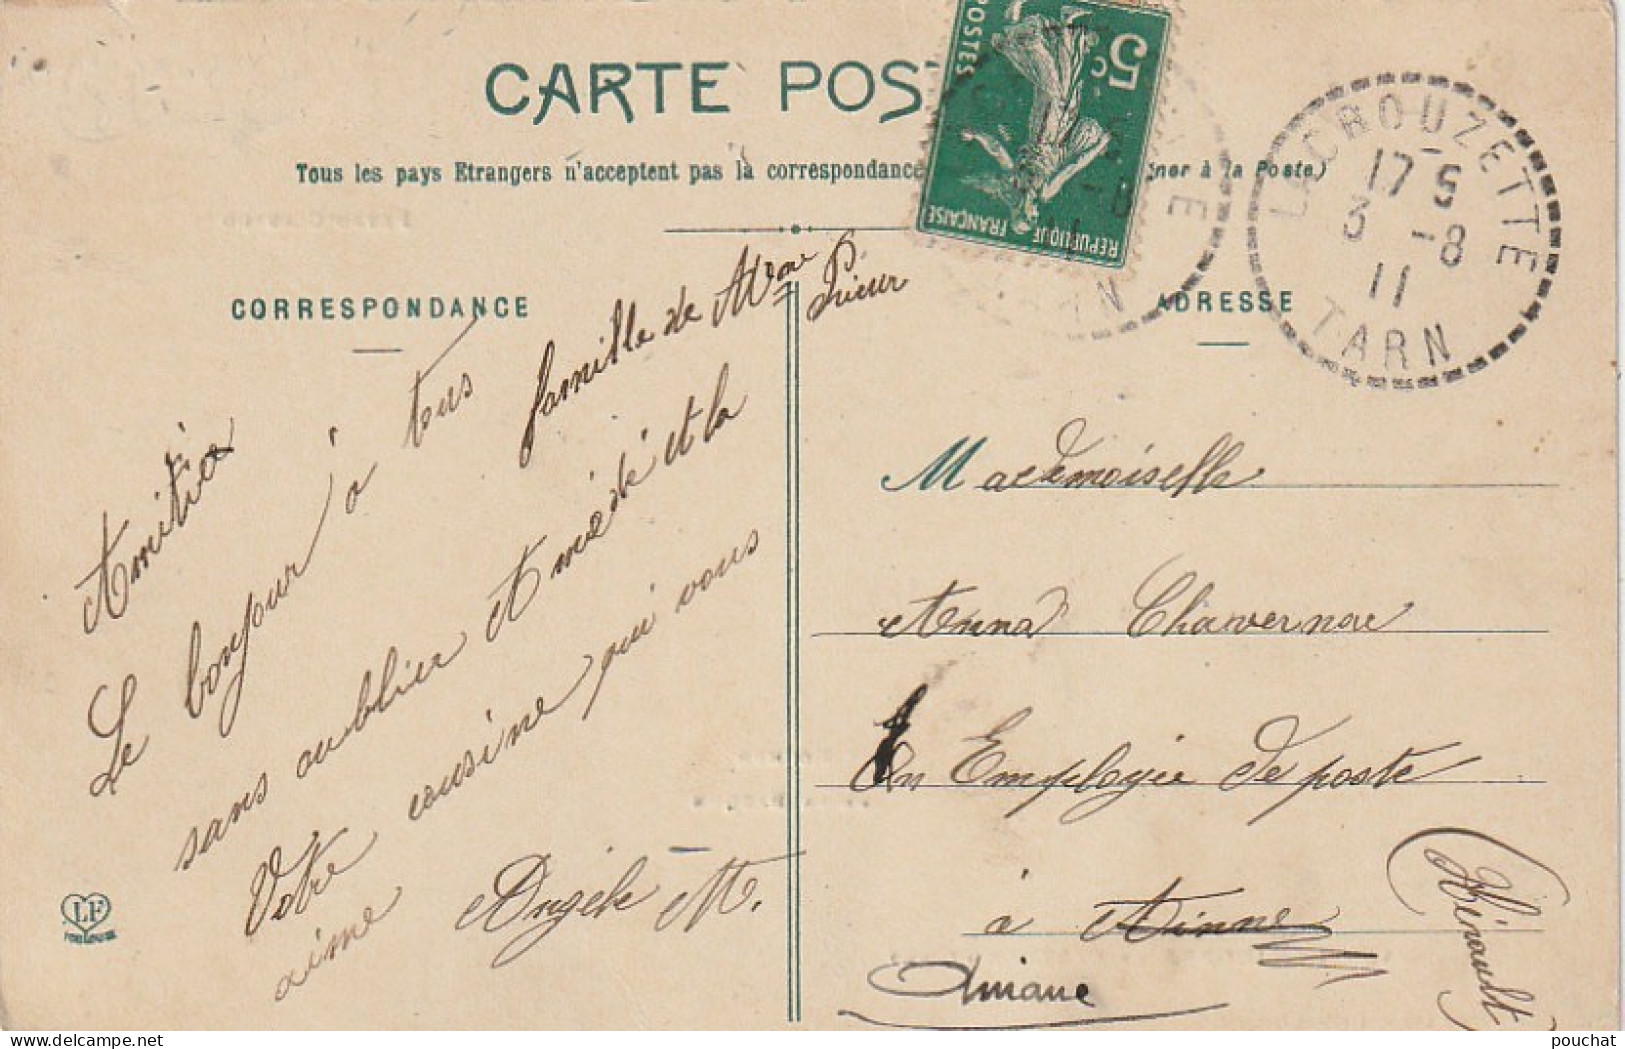 CARTE POS
Tous les pays Etrangers n'acceptent pas la correspondance
gner à la Poste.)
5 c
POSTES
REPUBLIQUE FRANÇAISE
LACROUZETTE
17 5
3 -8
11
TARN
CORRESPONDANCE
Amitiés
Le bonjour à tous
sans oublier Amédé et la
famille de Mme
Prieur
Votre cousine qui vous
aime Angèle M.
LF
ADRESSE
Mademoiselle
Anna Chavernac
En Employée de poste
à Anianne
Aniane
(Hérault)
pouchat